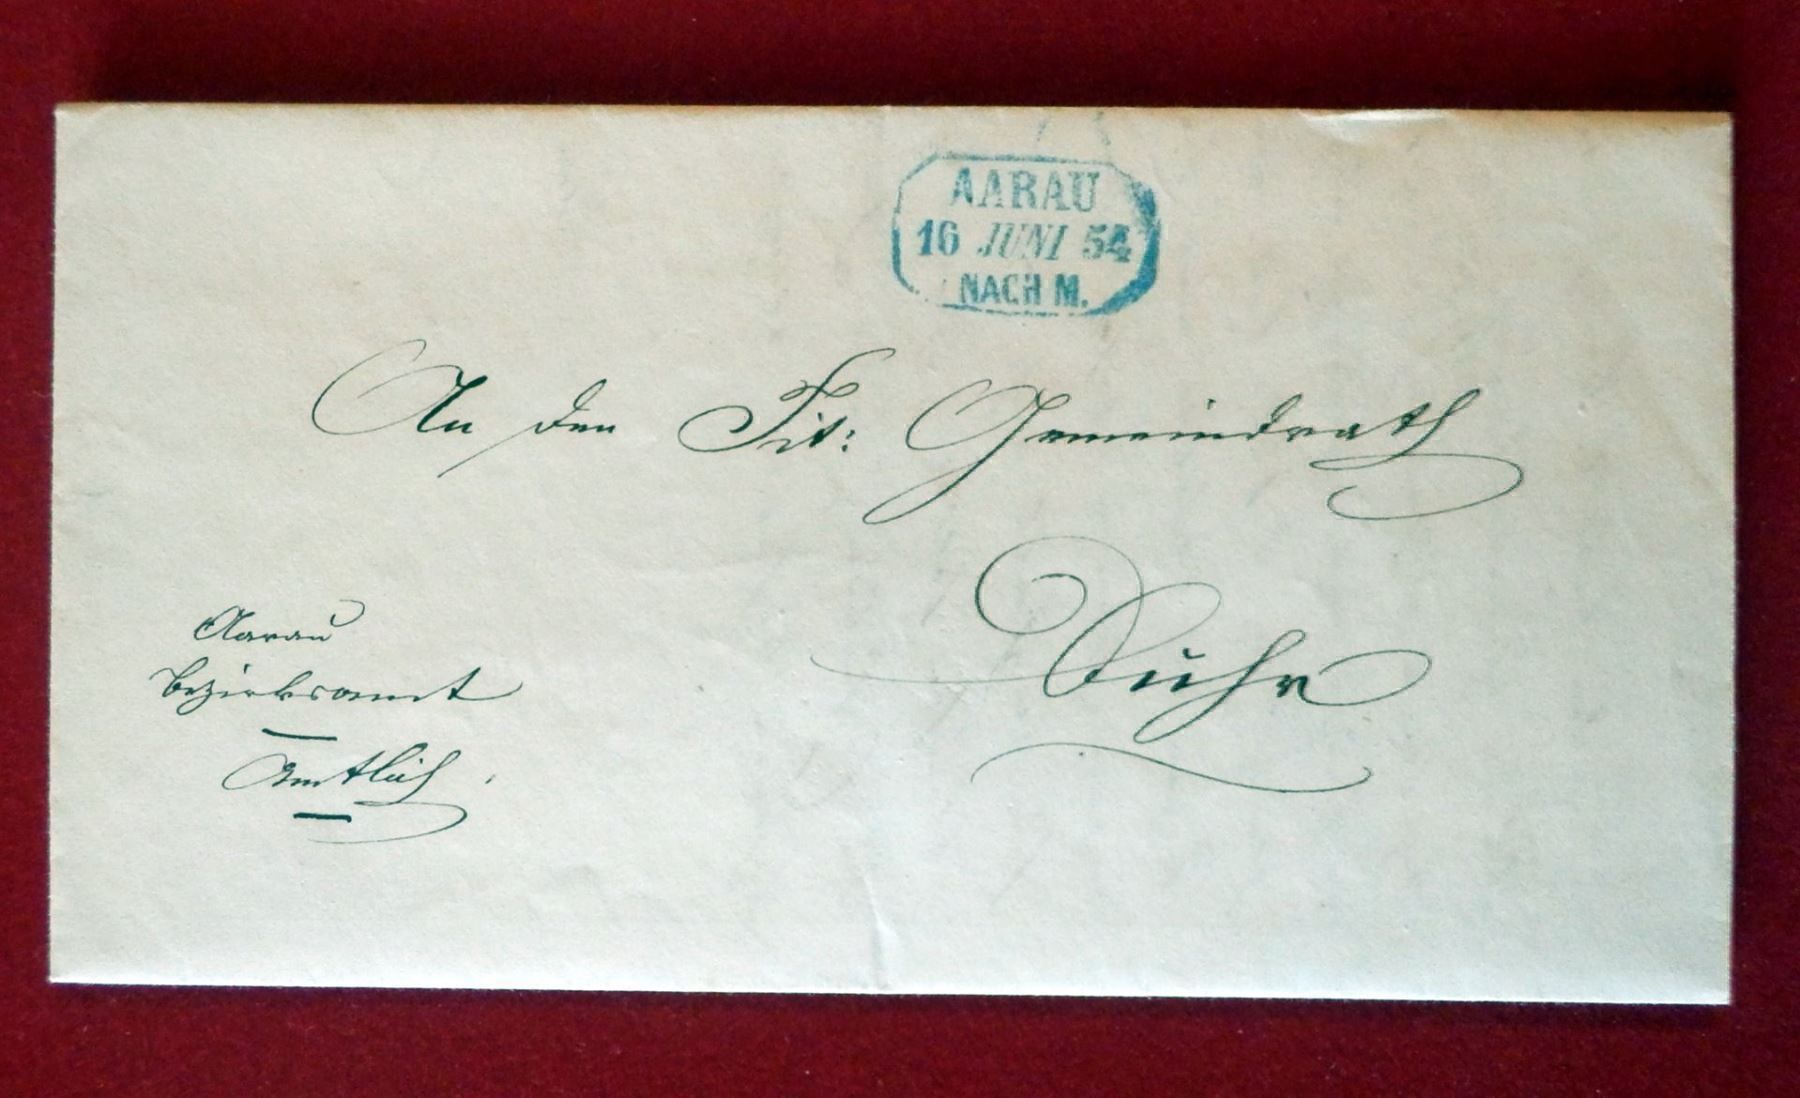 AARAU
16 JUNI 54
NACH M.
An den Tit: Gemeindrath
Suhr
Aarau
Bezirksamt
Amtlich